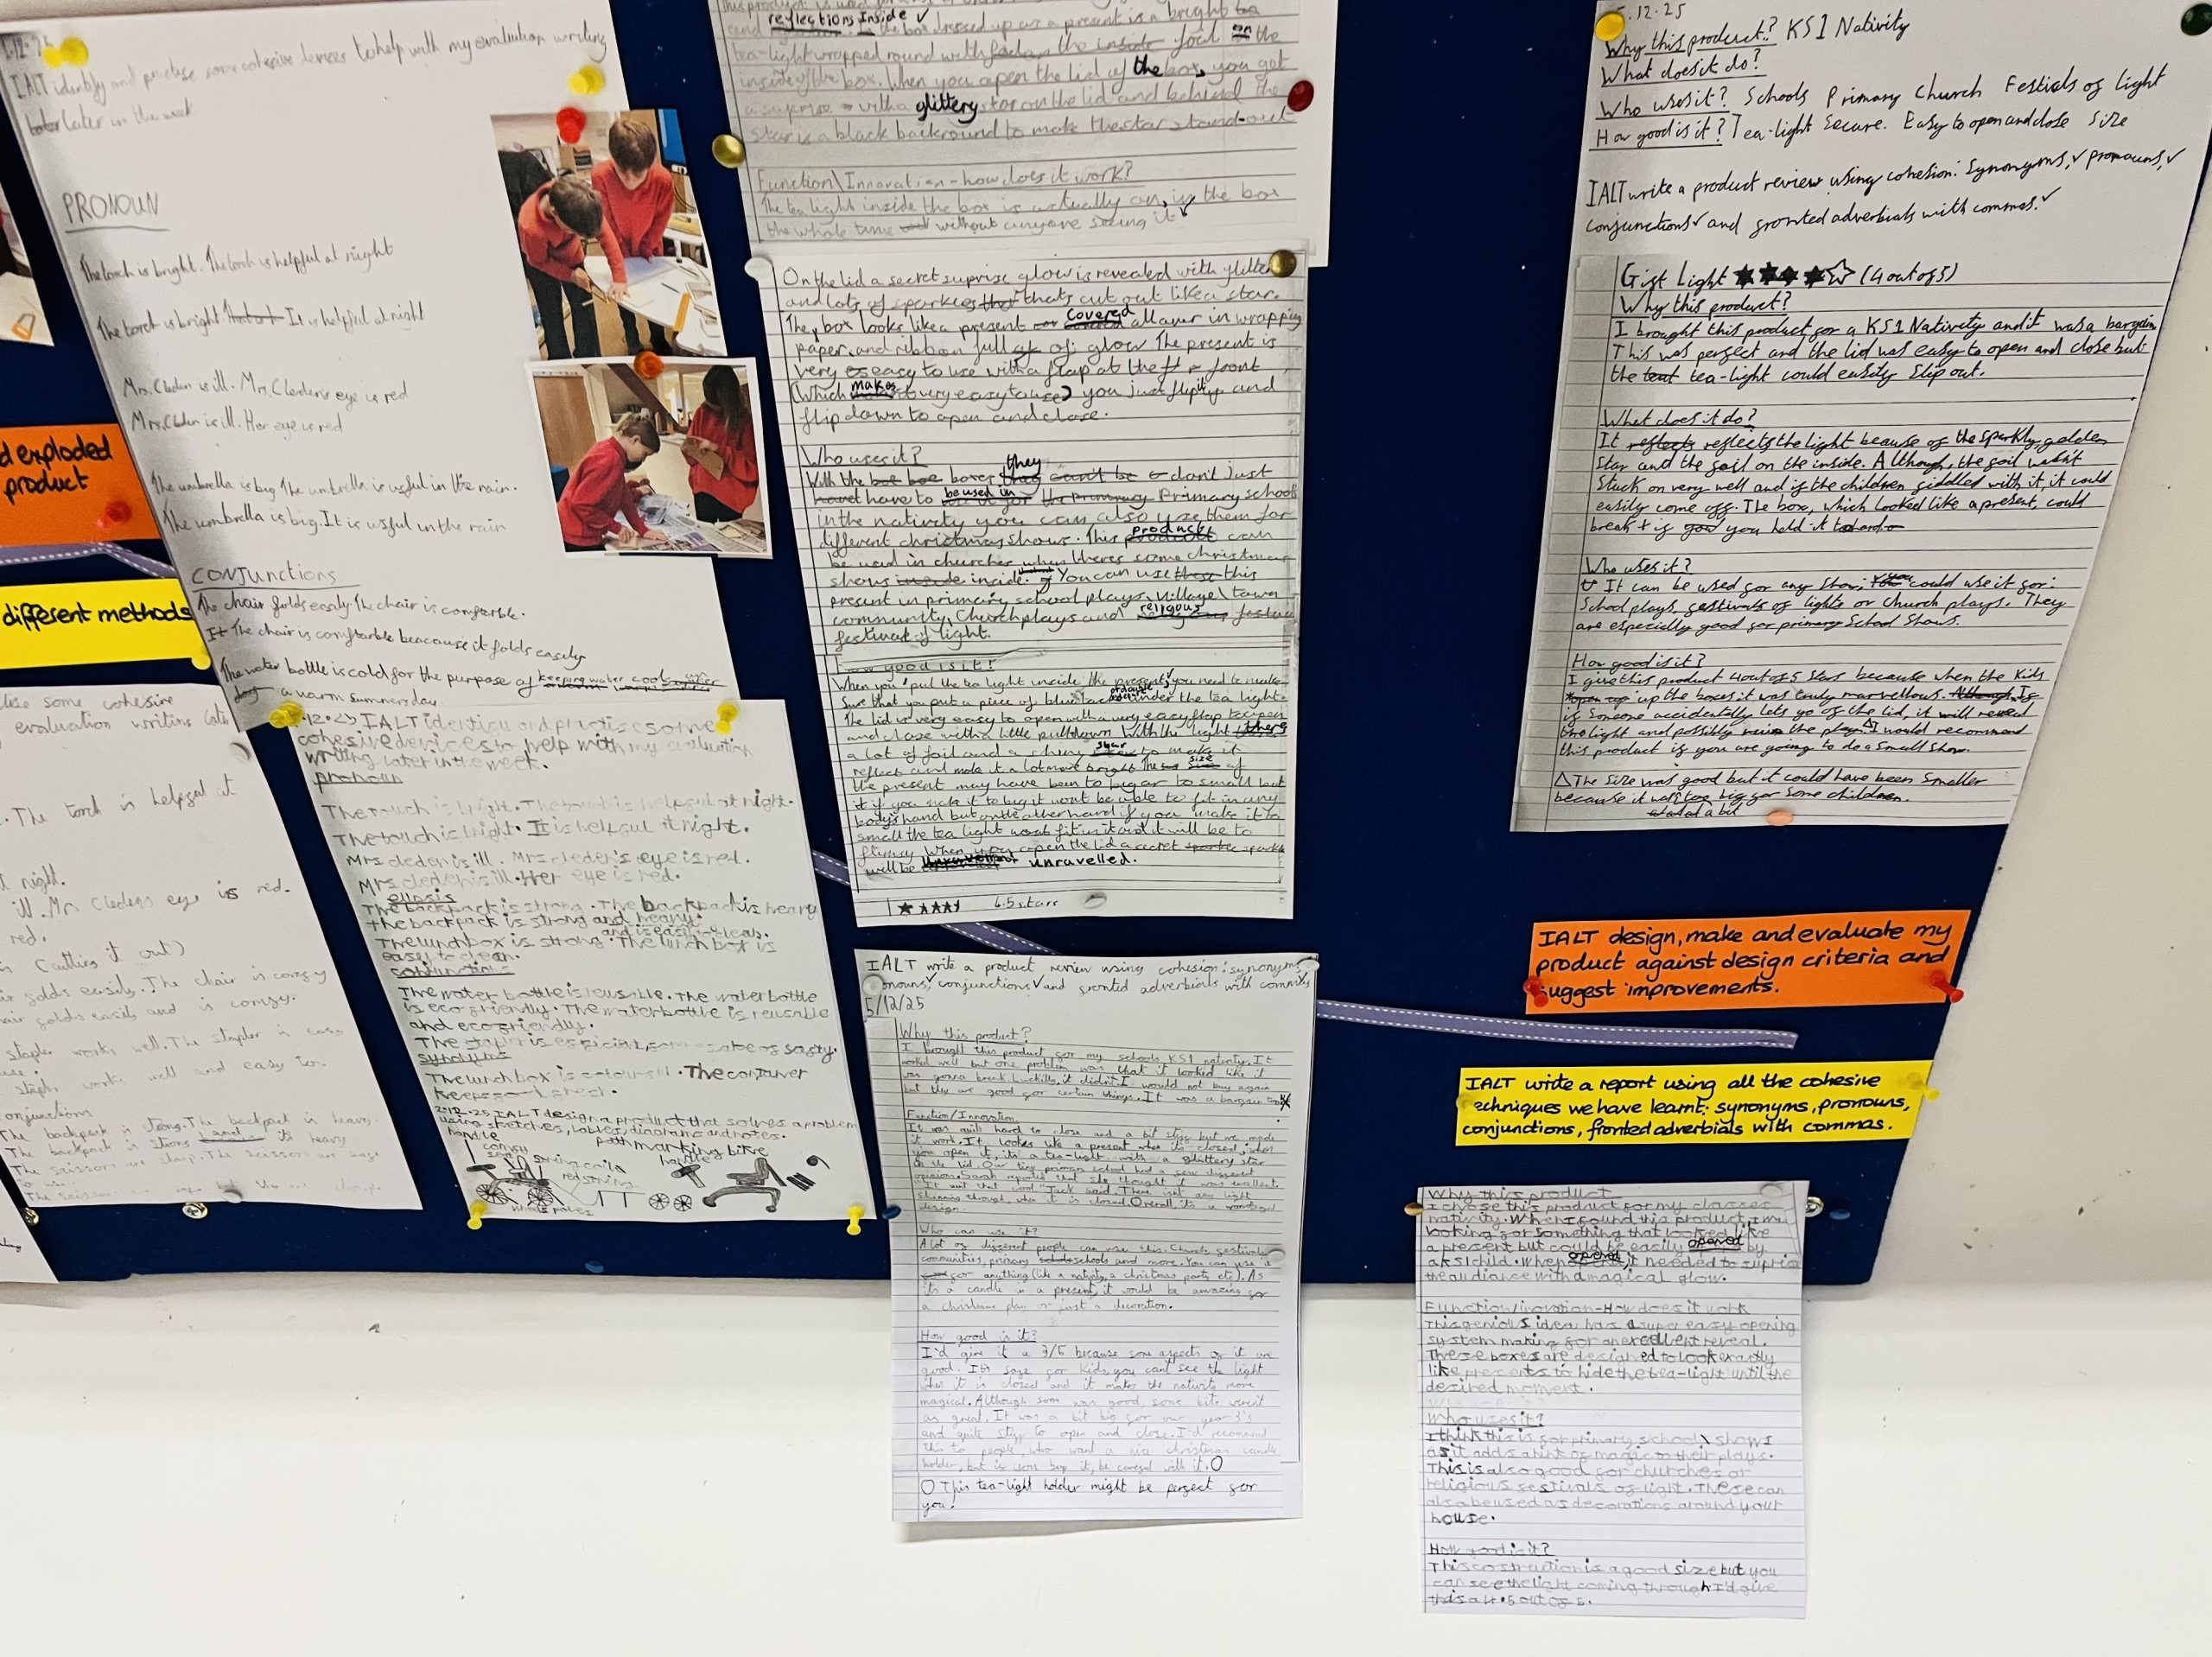 IALT identify and practise some cohesive devices to help with my evaluation writing
later in the week
PRONOUN
The torch is bright. The torch is helpful at night
The torch is bright It is helpful at night
Mrs. Cleden is ill. Mrs. Cleden's eye is red
Mrs. Cleden is ill. Her eye is red
The umbrella is big The umbrella is usful in the rain.
The umbrella is big. It is usful in the rain
CONJUNCTIONS
The chair folds easily The chair is comftarble.
The chair is comftarble beacause it folds easily
The water bottle is cold for the purpose of keeping water cool
a warm summers day.
d exploded
product
different methods
some cohesive
evaluation writing
. The torch is helpful at
night.
ill. Mrs Cledens eye is red.
red.
(cutting it out)
folds easily. The chair is comfy
folds easily and is comfy.
works well. The stapler is easy
works well and easy to
onjunctions
The backpack is strong. The backpack is heavy.
The backpack is strong and is heavy
IALT identify and practise some
cohesive devices to help with my evaluation
writing later in the week.
pronoun
The touch is bright. The touch is helpful at night.
The touch is bright. It is helpful at night.
Mrs cleden is ill. Mrs cleder's eye is red.
Mrs cleden is ill. Her eye is red.
The backpack is strong. The backpack is heavy
the backpack is strong and heavy.
The lunchbox is strong. The lunch box is
easy to clean.
conjunctions
The water bottle is reusable. The water bottle
is eco friendly. The waterbottle is reusable
and eco friendly.
synonyms
The lunch box is colourful. The container
2.12.25 IALT design a product that solves a problem
using sketches, lables, diagrams and notes.
path marking bike
handle
red string
reflections Inside ✓
tea-light wrapped round with foil on the
inside of the box. When you open the lid of the box, you get
a suprise with a glittery star on the lid and behind the
star is a black backround to make the star stand-out
Function\Innovation - how does it work?
The tea light inside the box is actually on, in the box
the whole time without anyone seeing it
On the lid a secret suprise glow is revealed with glitter
and lots of sparkles thats cut out like a star.
The box looks like a present covered all over in wrapping
paper and ribbon full of glow The present is
very easy to use with a flap at the front
(Which makes it very easy to use) you just flip it up and
flip down to open and close.
Who uses it?
With the boxes they don't just
have to be used in Primary schools
in the nativity you can also use them for
different christmas shows. This product can
be used in churches when theres some christmas
shows inside. You can use this
present in primary school plays, village\town
community, Church plays and religous
festival of light.
How good is it?
When you put the tea light inside the present, you need to make
sure that you put a piece of blue tack under the tea light.
The lid is very easy to open with a very easy flap to open
and close with a little pull down With the light there
a lot of foil and a shiny star to make it
reflect and make it a lot more bright The size of
the present may have been to big or to small but
if you make it to big it wont be able to fit in any
body's hand but on the other hand if you make it to
small the tea light wont fit in it and it will be to
flimsy When you open the lid a secret sparkle
will be unravelled.
4.5 starr
IALT write a product review using cohesion: synonyms,
onouns, ✓ conjunctions ✓ and fronted adverbials with commas
5/12/25
Why this product?
I brought this product for my schools KS1 nativity. It
worked well but one problem was that it looked like it
was gonna break. Luckily, it didn't. I would not buy again
but they are good for certain things. It was a bargain
Function/Innovation
It was quite hard to close and a bit stiff but we made
it work. It lookes like a present when its closed, when
you open it, it's a tea-light with a glittery star
in the lid. Our tiny primary school had a few different
opinions. Sarah reported that she thought it was excellent.
"It was that cool" Jack said. There isnt any light
shinning through when it is closed. Overall its a
design.
Who can use it?
A lot of different people can use this. Church festivals
communities, primary schools and more. You can use it
for anything (like a nativity, a christmas party etc). As
it's a candle in a present, it would be amazing for
a christmas play or just a decoration.
How good is it?
I'd give it a 3/5 because some aspects of it are
good. It's safe for kids, you can't see the light
when it is closed and it makes the nativity more
magical. Although some was good, some bits weren't
as great. It was a bit big for our year 3's
and quite stiff to open and close. I'd recommend
this to people who want a nice christmas candle
holder, but if you buy it, be careful with it.
This tea-light holder might be perfect for
you.
5.12.25
Why this product? KS1 Nativity
What does it do?
Who uses it? Schools Primary Church Festivals of light
How good is it? Tea-light Secure. Easy to open and close Size
IALT write a product review using cohesion: Synonyms, ✓ pronouns, ✓
conjunctions ✓ and fronted adverbials with commas. ✓
Gift Light ★★★★☆ (4 out of 5)
Why this product?
I brought this product for a KS1 Nativity and it was a bargain.
This was perfect and the lid was easy to open and close but
the tea-light could easily slip out.
What does it do?
It reflects the light beause of the sparkly, golden
star and the foil on the inside. Although, the foil wasn't
stuck on very well and if the children fiddled with it, it could
easily come off. The box, which looked like a present, could
break if you held it to
Who uses it?
It can be used for any show; You could use it for:
School plays, festivals of lights or Church plays. They
are especially good for primary School Shows.
How good is it?
I give this product 4 out of 5 stars because when the Kids
up the boxes it was truly marvellous. If
if someone accidentally lets go of the lid, it will reveal
the light and possibly ruin the play. △ I would recommend
this product if you are going to do a small show.
△ The size was good but it could have been smaller
because it was too big for some children.
a bit
IALT design, make and evaluate my
product against design criteria and
suggest improvements.
IALT write a report using all the cohesive
techniques we have learnt: synonyms, pronouns,
conjunctions, fronted adverbials with commas.
Why this product
I chose this product for my classes
nativity. When I found this product, I was
looking for something that looked like
a present but could be easily opened by
a KS1 child. When opened, it needed to suprise
the audiance with a magical glow.
Function/inovation-How does it work
This genious idea has a super easy opening
system making for an excellent reveal.
These boxes are designed to look exactly
like presents to hide the tea-light until the
desired moment.
Who uses it?
I think this is for primary school\shows
as it adds a hint of magic to their plays.
This is also good for churches or
religious festivals of light. These can
also be used as decorations around your
house.
How good is it?
This costruction is a good size but you
can see the light coming through I'd give
this a 4.5 out of 5.